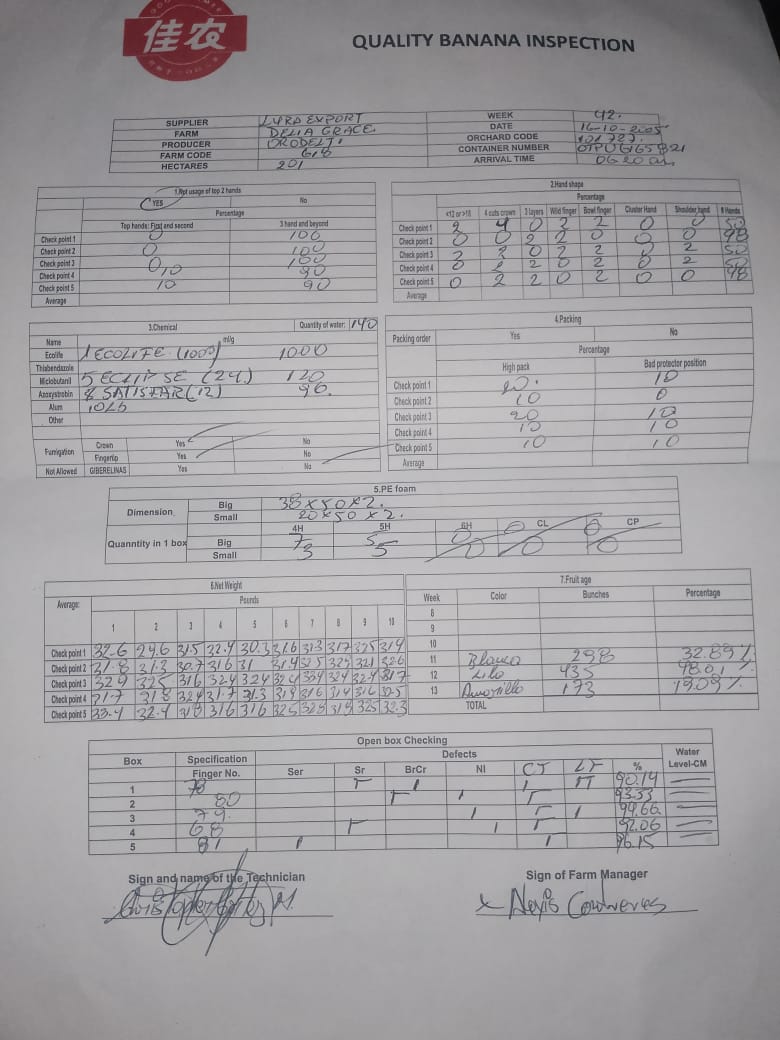 佳农
QUALITY BANANA INSPECTION
SUPPLIER LYRA EXPORT WEEK 42.
FARM DELIA GRACE. DATE 16-10-2025
PRODUCER ORODELTI ORCHARD CODE
FARM CODE 618 CONTAINER NUMBER
HECTARES 201 ARRIVAL TIME 06 20 am
1.Not usage of top 2 hands
YES No
Percentage
Top hands: First and second 3 hand and beyond
Check point 1 0 100
Check point 2 0 100
Check point 3 0 100
Check point 4 0,10 90
Check point 5 10 90
Average
2.Hand shape
Percentage
<12 or >18 4 cuts crown 3 layers Wild finger Bowl finger Cluster Hand Shoulder hand # Hands
Check point 1 2 4 0 2 2 0 0 50
Check point 2 0 0 2 2 0 0 0 48
Check point 3 2 2 0 0 2 0 2 50
Check point 4 0 2 2 0 2 0 2 50
Check point 5 0 2 2 0 2 0 0 48
Average
3.Chemical Quantity of water: 140
Name ml/g
Ecolife 1 ECOLIFE (1000) 1000
Thiabendazole
Miclobutanil 5 ECLIPSE (24) 120
Azoxystrobin 8 SATISTAR (12) 96.
Alum 10Lb
Other
Fumigation Crown Yes No
Fingertip Yes No
Not Allowed GIBERELINAS Yes No
4.Packing
Packing order Yes No
Percentage
High pack Bad protector position
Check point 1 20. 10
Check point 2 10 0
Check point 3 20 10
Check point 4 10 10
Check point 5 10 10
Average
5.PE foam
Dimension Big 38 x 50 x 2.
Small 20 x 50 x 2.
4H 5H 6H CL CP
Quanntity in 1 box Big 7 5 0 0 0
Small 3 5 0 0 0
6.Net Weight
Average: Pounds
1 2 3 4 5 6 7 8 9 10
Check point 1 32.6 29.6 31.5 32.4 30.3 31.6 31.3 31.7 32.5 31.9
Check point 2 31.8 31.3 30.7 31.6 31 31.4 32.4 32.1 32.6
Check point 3 32.9 32.5 31.6 32.4 32.4 32.4 32.4 32.4 31.7
Check point 4 31.7 31.8 32.4 31.7 31.3 31.9 31.6 31.4 31.6 32.5
Check point 5 33.4 32.4 31.8 31.6 31.6 32.5 32.8 31.9 32.5 32.3
7.Fruit age
Week Color Bunches Percentage
8
9
10
11 Blanco 298 32.89%
12 Lila 435 48.01%
13 Amarillo 173 19.09%
TOTAL
Open box Checking
Box Specification Defects Water
Finger No. Ser Sr BrCr NI CT LT % Level-CM
1 78 90.14
2 80 93.33
3 79. 94.66
4 68 92.06
5 81 96.15
Sign and name of the Technician Sign of Farm Manager